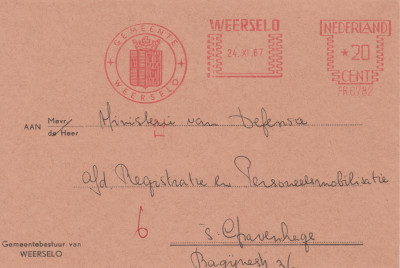 GEMEENTE WEERSELO
WEERSELO
24.XI.67
NEDERLAND
*20
CENT
FR 6782
AAN Mevr/
de Heer
Ministerie van Defensie
afd. Registratie en Personeelsmobilisatie
6
's Gravenhage
Bagijnestr 31
Gemeentebestuur van
WEERSELO